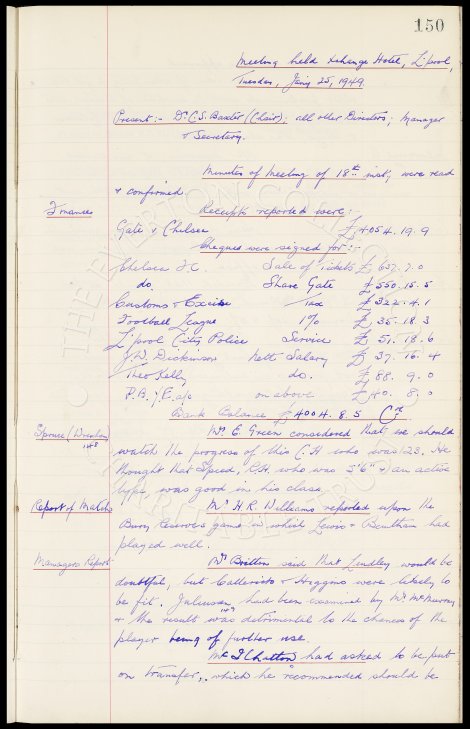 150
Meeting held Xchange Hotel, L'pool,
Tuesday, Jany 25, 1949.
Present:- Dr. C.S. Baxter (Chair); all other Directors; Manager
& Secretary.
Minutes of Meeting of 18th inst, were read
& confirmed.
Finances Receipts reported were:
Gate v Chelsea £4054.19.9
Cheques were signed for:-
Chelsea F.C. Sale of Tickets £637.7.0
do. Share Gate £550.15.5
Customs & Excise Tax £322.4.1
Football League 1% £35.18.3
L'pool City Police Service £51.18.6
J.W. Dickinson nett Salary £37.16.4
Theo Kelly do. £88.9.0
P.A.Y.E. a/c on above £40.8.0
Bank Balance £4004.8.5 Cr.
Spruce/Wrexham Mr. E. Green considered that we should
watch the progress of this C.H who was 23. He
thought that Speed, R.H. who was 5'6" & an active
type, was good in his class.
Report of Matches Mr H.R. Williams reported upon the
Bury Reserves game in which Lewis & Bentham had
played well.
Managers Report Mr Britton said that Lindley would be
doubtful, but Catterick & Higgins were likely to
be fit. Juliussen had been examined by Mr. McMurray
& the result was detrimental to the chances of the
player being of further use.
had asked to be put
on transfer, which he recommended should be